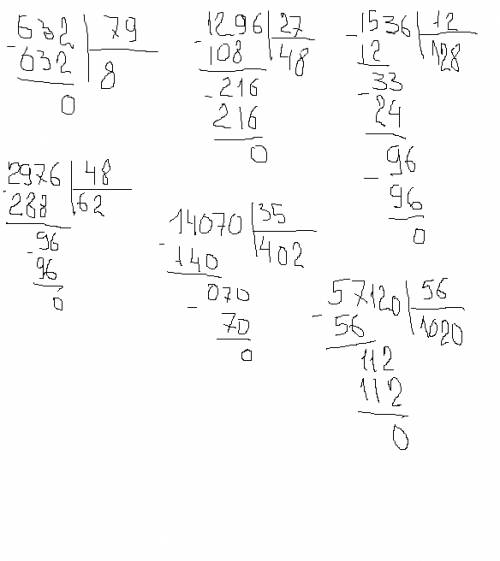 632 79
- 632 8
0
1296 27
- 108 48
- 216
216
0
- 1536 12
12 128
- 33
24
- 96
96
0
2976 48
- 288 62
- 96
96
0
14070 35
- 140 402
070
- 70
0
- 57120 56
56 1020
112
112
0